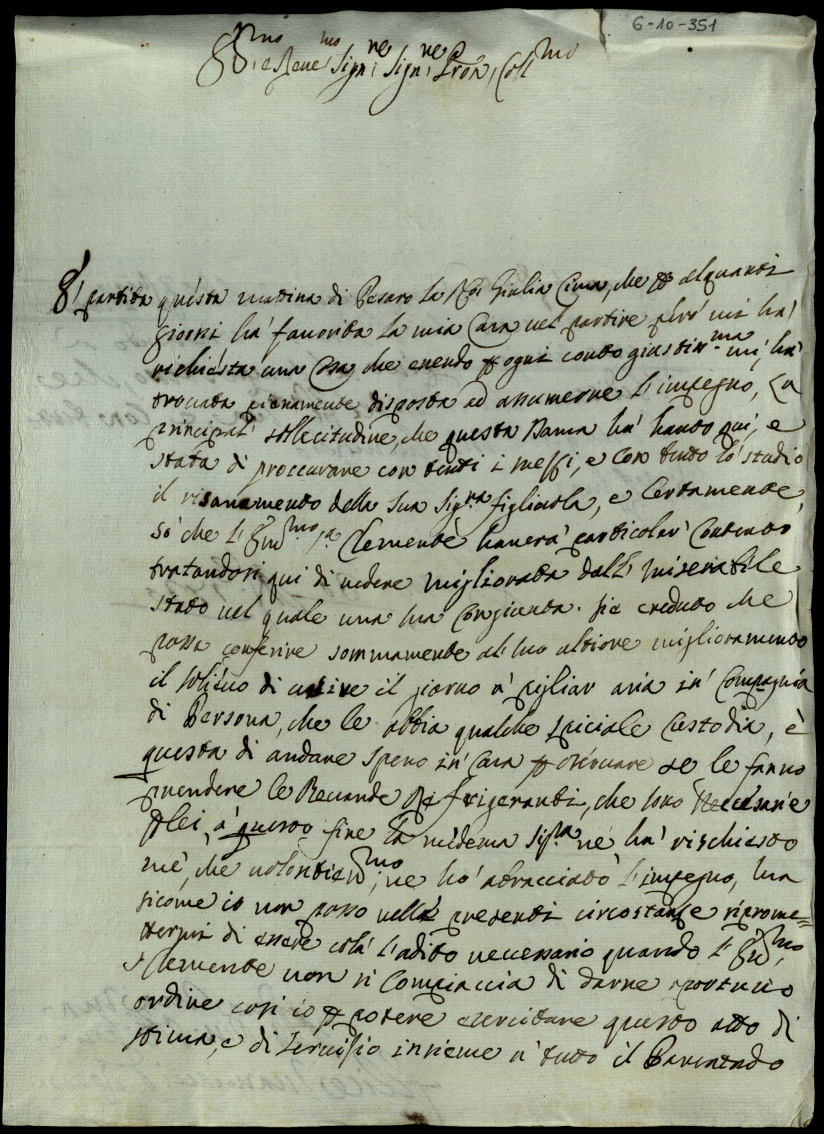 6-10-351
Ill.mo e Reve.mo Sign.re Sign.re Pron. Coll.mo
È partita questa mattina di Pesaro la Giulia Cima, che p alquanti
giorni ha' favorita la mia Casa nel partire mi ha'
richiesta una cosa che essendo p ogni conto giustiss.ma mi ha'
trovata pienamente disposta ad assumerne l'impegno, La
principal' sollecitudine, che questa Dama ha' hauto qui, e
stata di proccurare con tutti i mezzi, e con tutto lo' studio
il risanamento della sua Sig.ra figliuola, e certamente,
so' che l' Em.mo S. Clemente haverà particolar' contento
tratandosi qui di vedere migliorata dall' miserabile
stato nel quale una sua congionta. Sie creduto che
possa conferire sommamente al suo ultiore miglioramento
il solievo di uscire il giorno a' pigliar aria in' Compagnia
di Persona, che le abbia qualche spiciale Custodia, è
questa di andare spero in' Casa p osservare se le fanno
prendere le Bevande Refrigeranti, che sono Necesarie
p lei, a' questo fine la medema Sig.ra ne' ha' rischiesto
me', che volontieriss.mo ne ho' abracciato l'impegno, ma
sicome io non posso nelle presenti circostanze riprome=
ttermi di essere colà l'adito necessario quando l' Em.mo
S. Clemente non si Compiaccia di darne oportuno
ordine cosi io p potere esercitare questo atto di
stima, e di servizio insieme a' tutto il Parentado